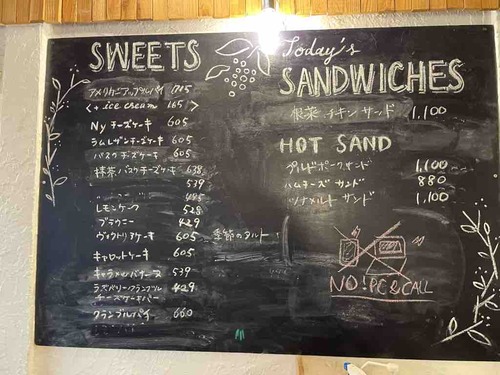 SWEETS
アメリカンアップルパイ 785
<+ ice cream 165>
Ny チーズケーキ 605
ラムレザンチーズケーキ 605
バスクチーズケーキ 605
抹茶バスクチーズケーキ 638
539
495
レモンケーク 528
ブラウニー 429
ヴィクトリアケーキ 605
季節のタルト
キャロットケーキ 605
キャラメルバナーヌ 539
ラズベリークランブル 429
チーズケーキバー
クランブルパイ 660
Today's
SANDWICHES
根菜チキンサンド 1,100
HOT SAND
プルドポークサンド 1,100
ハムチーズサンド 880
ツナメルトサンド 1,100
NO! PC & CALL